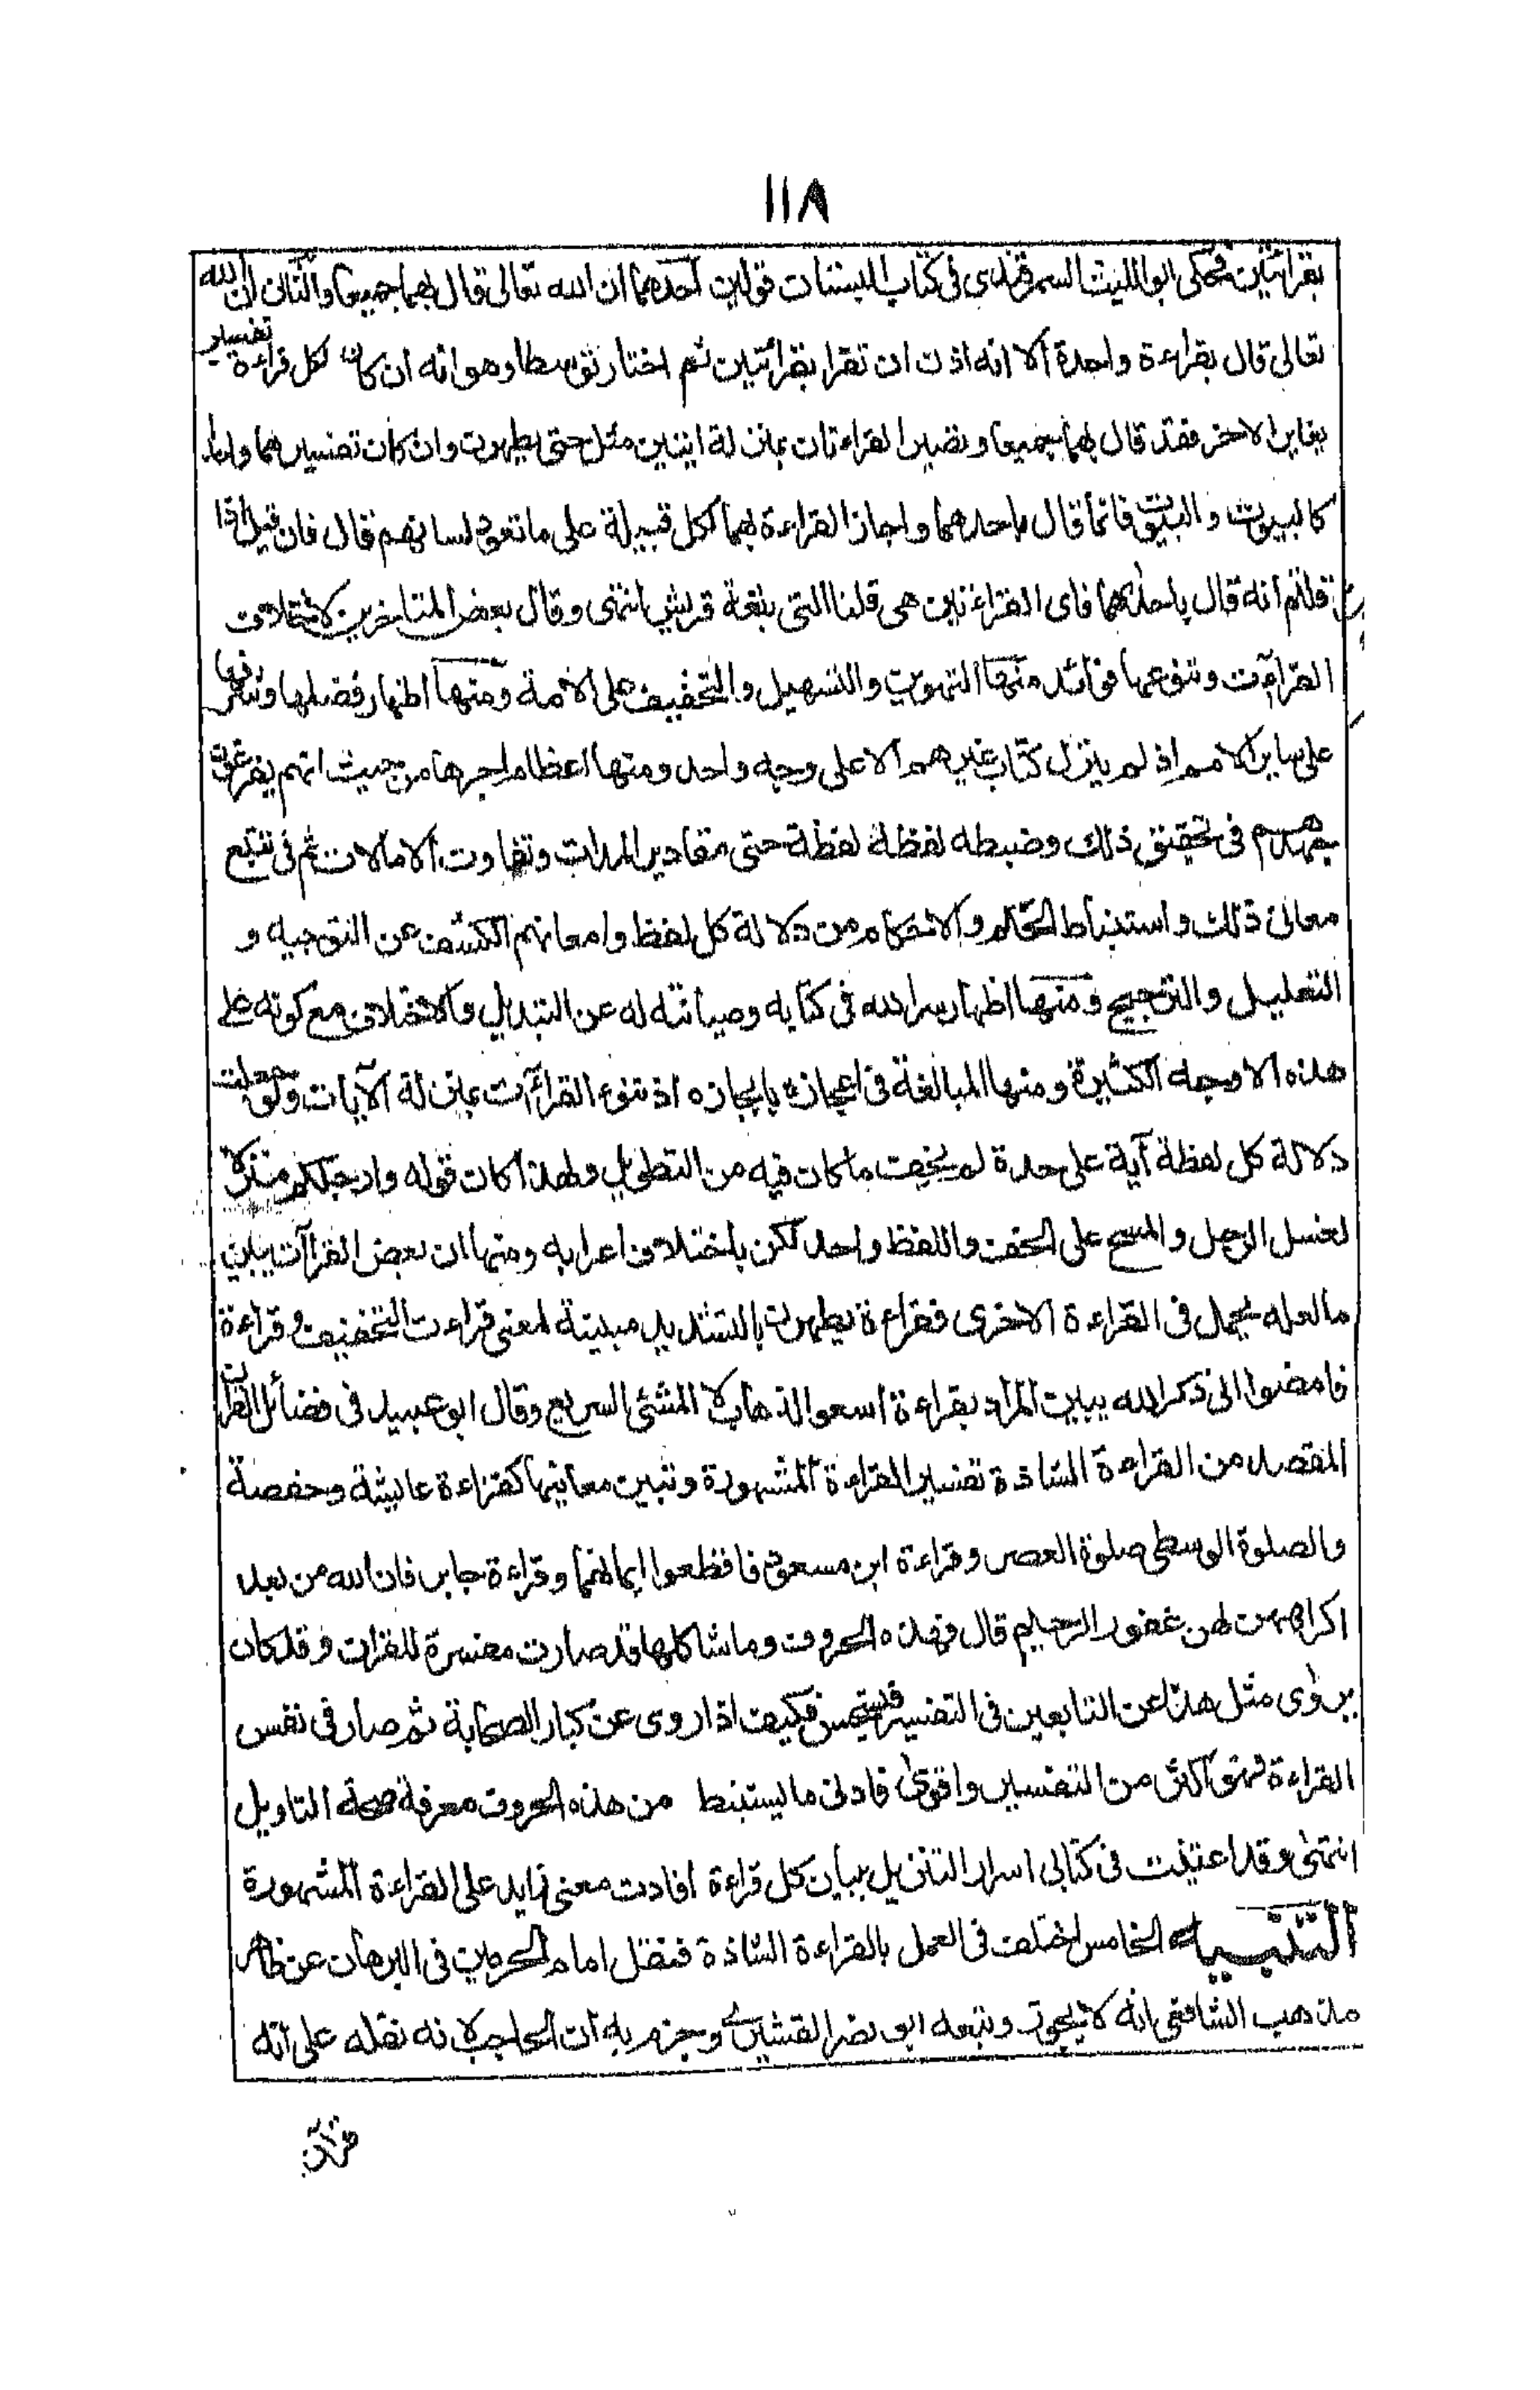 ١١٨
بقرائتين فحكى ابو الليث السمرقندى فى كتاب البستان قولين احدهما ان الله تعالى قال بهما جميعا والثانى ان الله
تعالى قال بقراءة واحدة الا انه اذن ان تقرا بقرائتين ثم اختار توسطا وهو انه ان كان لكل قراءة تفسير
يغاير الاخر فقد قال بهما جميعا وتصير القراءتان بمنزلة ايتين مثل حتى يطهرن وان كان تفسيرهما واحدا
كالبيوت والبيوت فانما قال باحدهما واجاز القراءة بهما لكل قبيلة على ما تعود لسانهم قال فان قيل اذا
قلتم انه قال باحدهما فاى القراءتين هى قلنا التى بلغة قريش انتهى وقال بعض المتاخرين لاختلاف
القرآءت وتنوعها فوائد منها التهوين والتسهيل والتخفيف على الامة ومنها اظهار فضلها وشرفها
على ساير الامم اذ لم ينزل كتاب غيرهم الا على وجه واحد ومنها اعظام اجرها من حيث انهم يفرغون
جهدهم فى تحقيق ذلك وضبطه لفظة لفظة حتى مقادير المدات وتفاوت الامالات ثم فى تتبع
معانى ذلك واستنباط الحكم والاحكام من دلالة كل لفظ وامعانهم الكشف عن التوجيه و
التعليل والترجيح ومنها اظهار سر الله فى كتابه وصيانته له عن التبديل والاختلاف مع كونه على
هذه الاوجه الكثيرة ومنها المبالغة فى اعجازه بايجازه اذ تنوع القرآءت بمنزلة الآيات ولو جعلت
دلالة كل لفظة آية على حدة لم يخف ما كان فيه من التطويل ولهذا كان قوله وارجلكم منزلا
لغسل الرجل والمسح على الخف واللفظ واحد لكن باختلاف اعرابه ومنها ان بعض القراآت يبين
ما لعله يجمل فى القراءة الاخرى فقراءة يطهرن بالتشديد مبينة لمعنى قراءت التخفيف وقراءة
فامضوا الى ذكر الله يبين المراد بقراءة اسعوا الذهاب لا المشى السريع وقال ابو عبيد فى فضائل القران
المقصد من القراءة الشاذة تفسير القراءة المشهورة وتبين معانيها كقراءة عايشة وحفصة
والصلوة الوسطى صلوة العصر وقراءة ابن مسعود فاقطعوا ايمانهما وقراءة جابر فان الله من بعد
اكراههن لهن غفور الرحيم قال فهذه الحروف وما شاكلها قد صارت مفسرة للقران وقد كان
يروى مثل هذا عن التابعين فى التفسير فيستحسن فكيف اذا روى عن كبار الصحابة ثم صار فى نفس
القراءة فهو اكثر من التفسير واقوى فادنى ما يستنبط من هذه الحروف معرفة صحة التاويل
انتهى وقد اعتنيت فى كتابى اسرار التنزيل ببيان كل قراءة افادت معنى زايد على القراءة المشهورة
التنبيه الخامس اختلف فى العمل بالقراءة الشاذة فنقل امام الحرمين فى البرهان عن ظاهر
مذهب الشافعى انه لا يجوز وتبعه ابو نصر القشيرى وجزم به ابن الحاجب لانه نقله على انه
قرآن